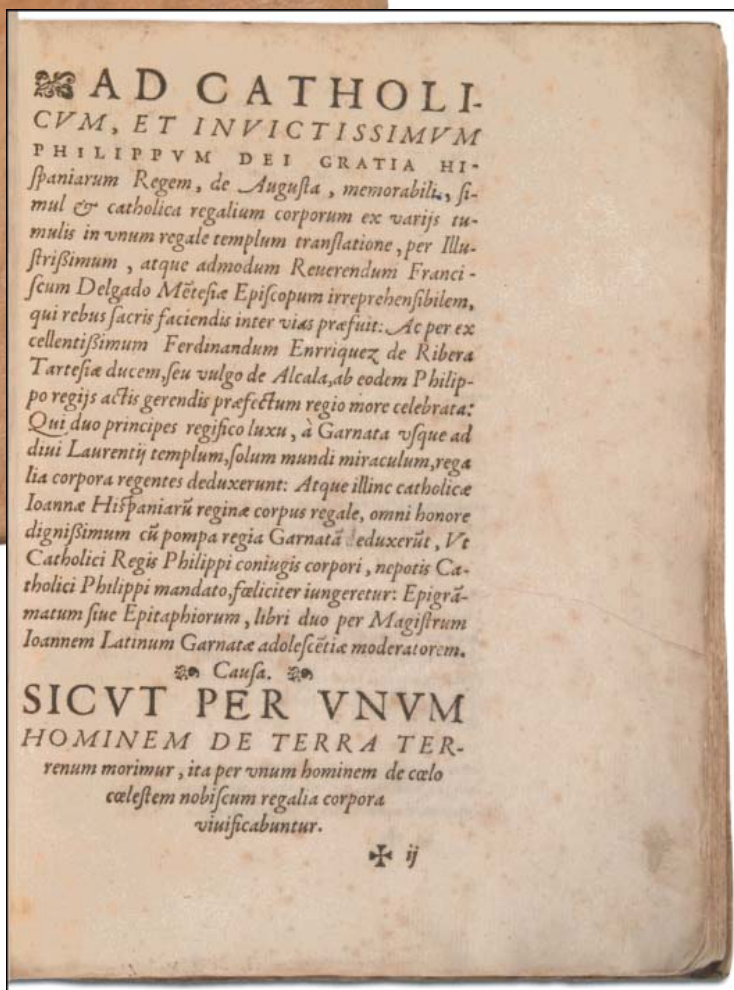 AD CATHOLI-
CVM, ET INVICTISSIMVM
PHILIPPVM DEI GRATIA HI-
ſpaniarum Regem, de Auguſta, memorabili, ſi-
mul & catholica regalium corporum ex varijs tu-
mulis in vnum regale templum tranſlatione, per Illu-
ſtriſſimum, atque admodum Reuerendum Franci-
ſcum Delgado Mẽteſiæ Epiſcopum irreprehenſibilem,
qui rebus ſacris faciendis inter vias præfuit: Ac per ex
cellentiſſimum Ferdinandum Enrriquez de Ribera
Tarteſiæ ducem, ſeu vulgo de Alcala, ab eodem Philip-
po regijs actis gerendis præfectum regio more celebrata:
Qui duo principes regifico luxu, à Garnata vſque ad
diui Laurentij templum, ſolum mundi miraculum, rega
lia corpora regentes deduxerunt: Atque illinc catholicæ
Ioannæ Hiſpaniarũ reginæ corpus regale, omni honore
digniſſimum cũ pompa regia Garnatã deduxerũt, Vt
Catholici Regis Philippi coniugis corpori, nepotis Ca-
tholici Philippi mandato, fœliciter iungeretur: Epigrã-
matum ſiue Epitaphiorum, libri duo per Magiſtrum
Ioannem Latinum Garnatæ adoleſcẽtiæ moderatorem.
Cauſa.
SICVT PER VNVM
HOMINEM DE TERRA TER-
renum morimur, ita per vnum hominem de cœlo
cœleſtem nobiſcum regalia corpora
viuificabuntur.
✠ ij